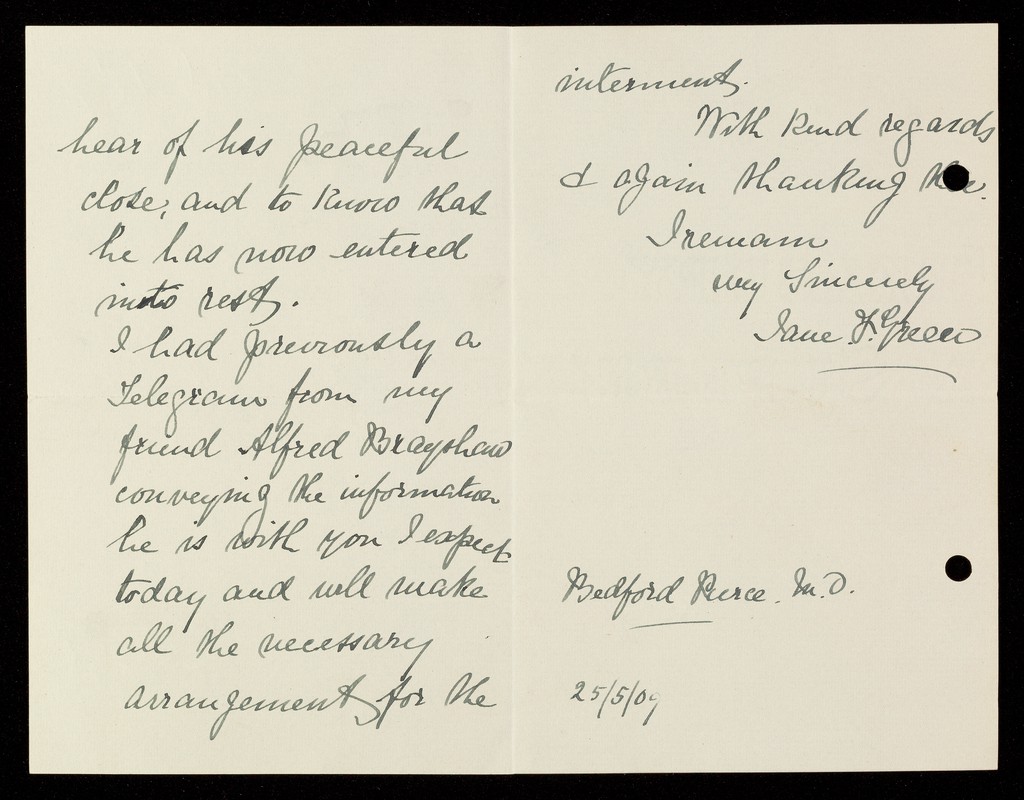 hear of his peaceful
close, and to know that
he has now entered
into rest.
I had previously a
Telegram from my
friend Alfred Brayshaw
conveying the information
he is with you I expect
today and will make
all the necessary
arrangements for the
interment.
With kind regards
& again thanking
I remain
Sincerely
Jane F. Green
Bedford Pierce. M.D.
25/5/09